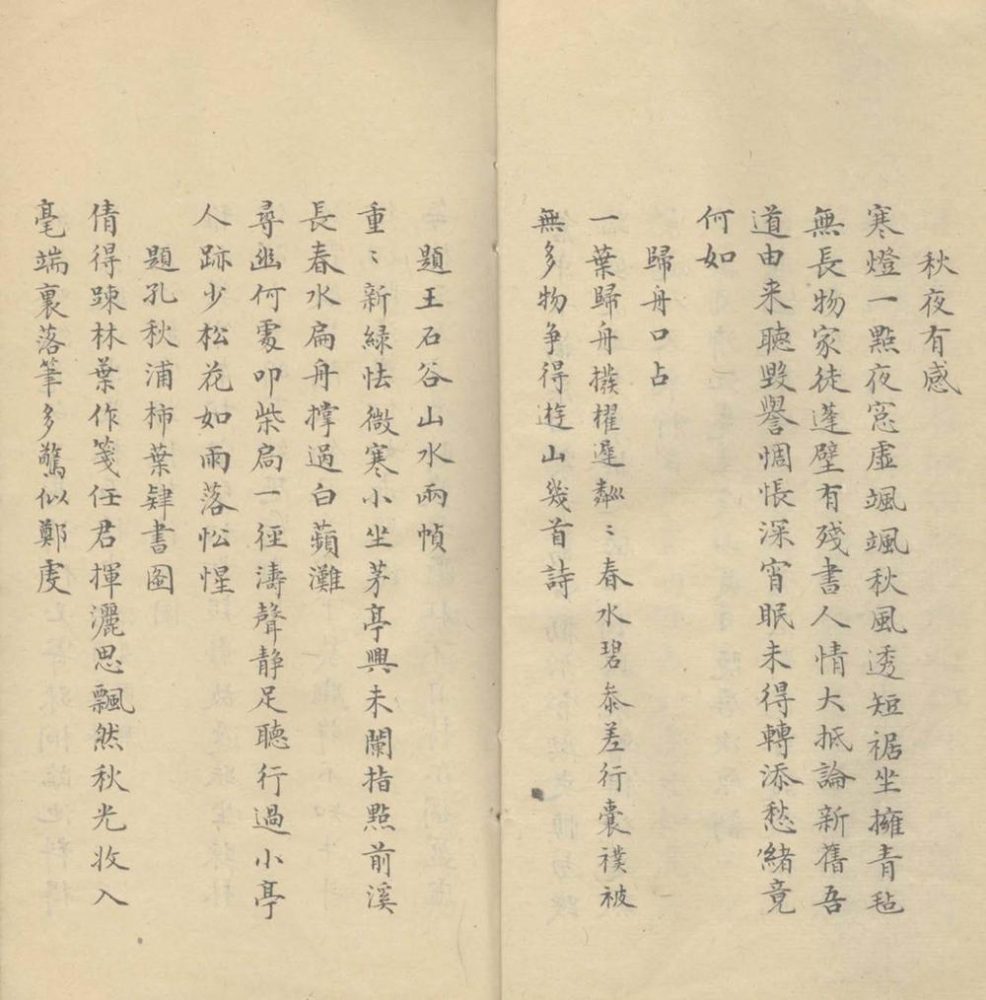 秋夜有感
寒燈一點夜窓虛颯颯秋風透短裾坐擁青毡
無長物家徒蓬壁有殘書人情大抵論新舊吾
道由来聽毀譽惆悵深宵眠未得轉添愁緒竟
何如
歸舟口占
一葉歸舟撥櫂遲粼〻春水碧叅差行囊襆被
無多物争得遊山幾首詩
題王石谷山水兩幀
重〻新綠怯微寒小坐茅亭興未闌指點前溪
長春水扁舟撑過白蘋灘
尋幽何處叩柴扃一徑濤聲静足聽行過小亭
人跡少松花如雨落忪惺
題孔秋浦柿葉肄書圖
倩得踈林葉作箋任君揮灑思飄然秋光收入
毫端裏落筆多驚似鄭虔